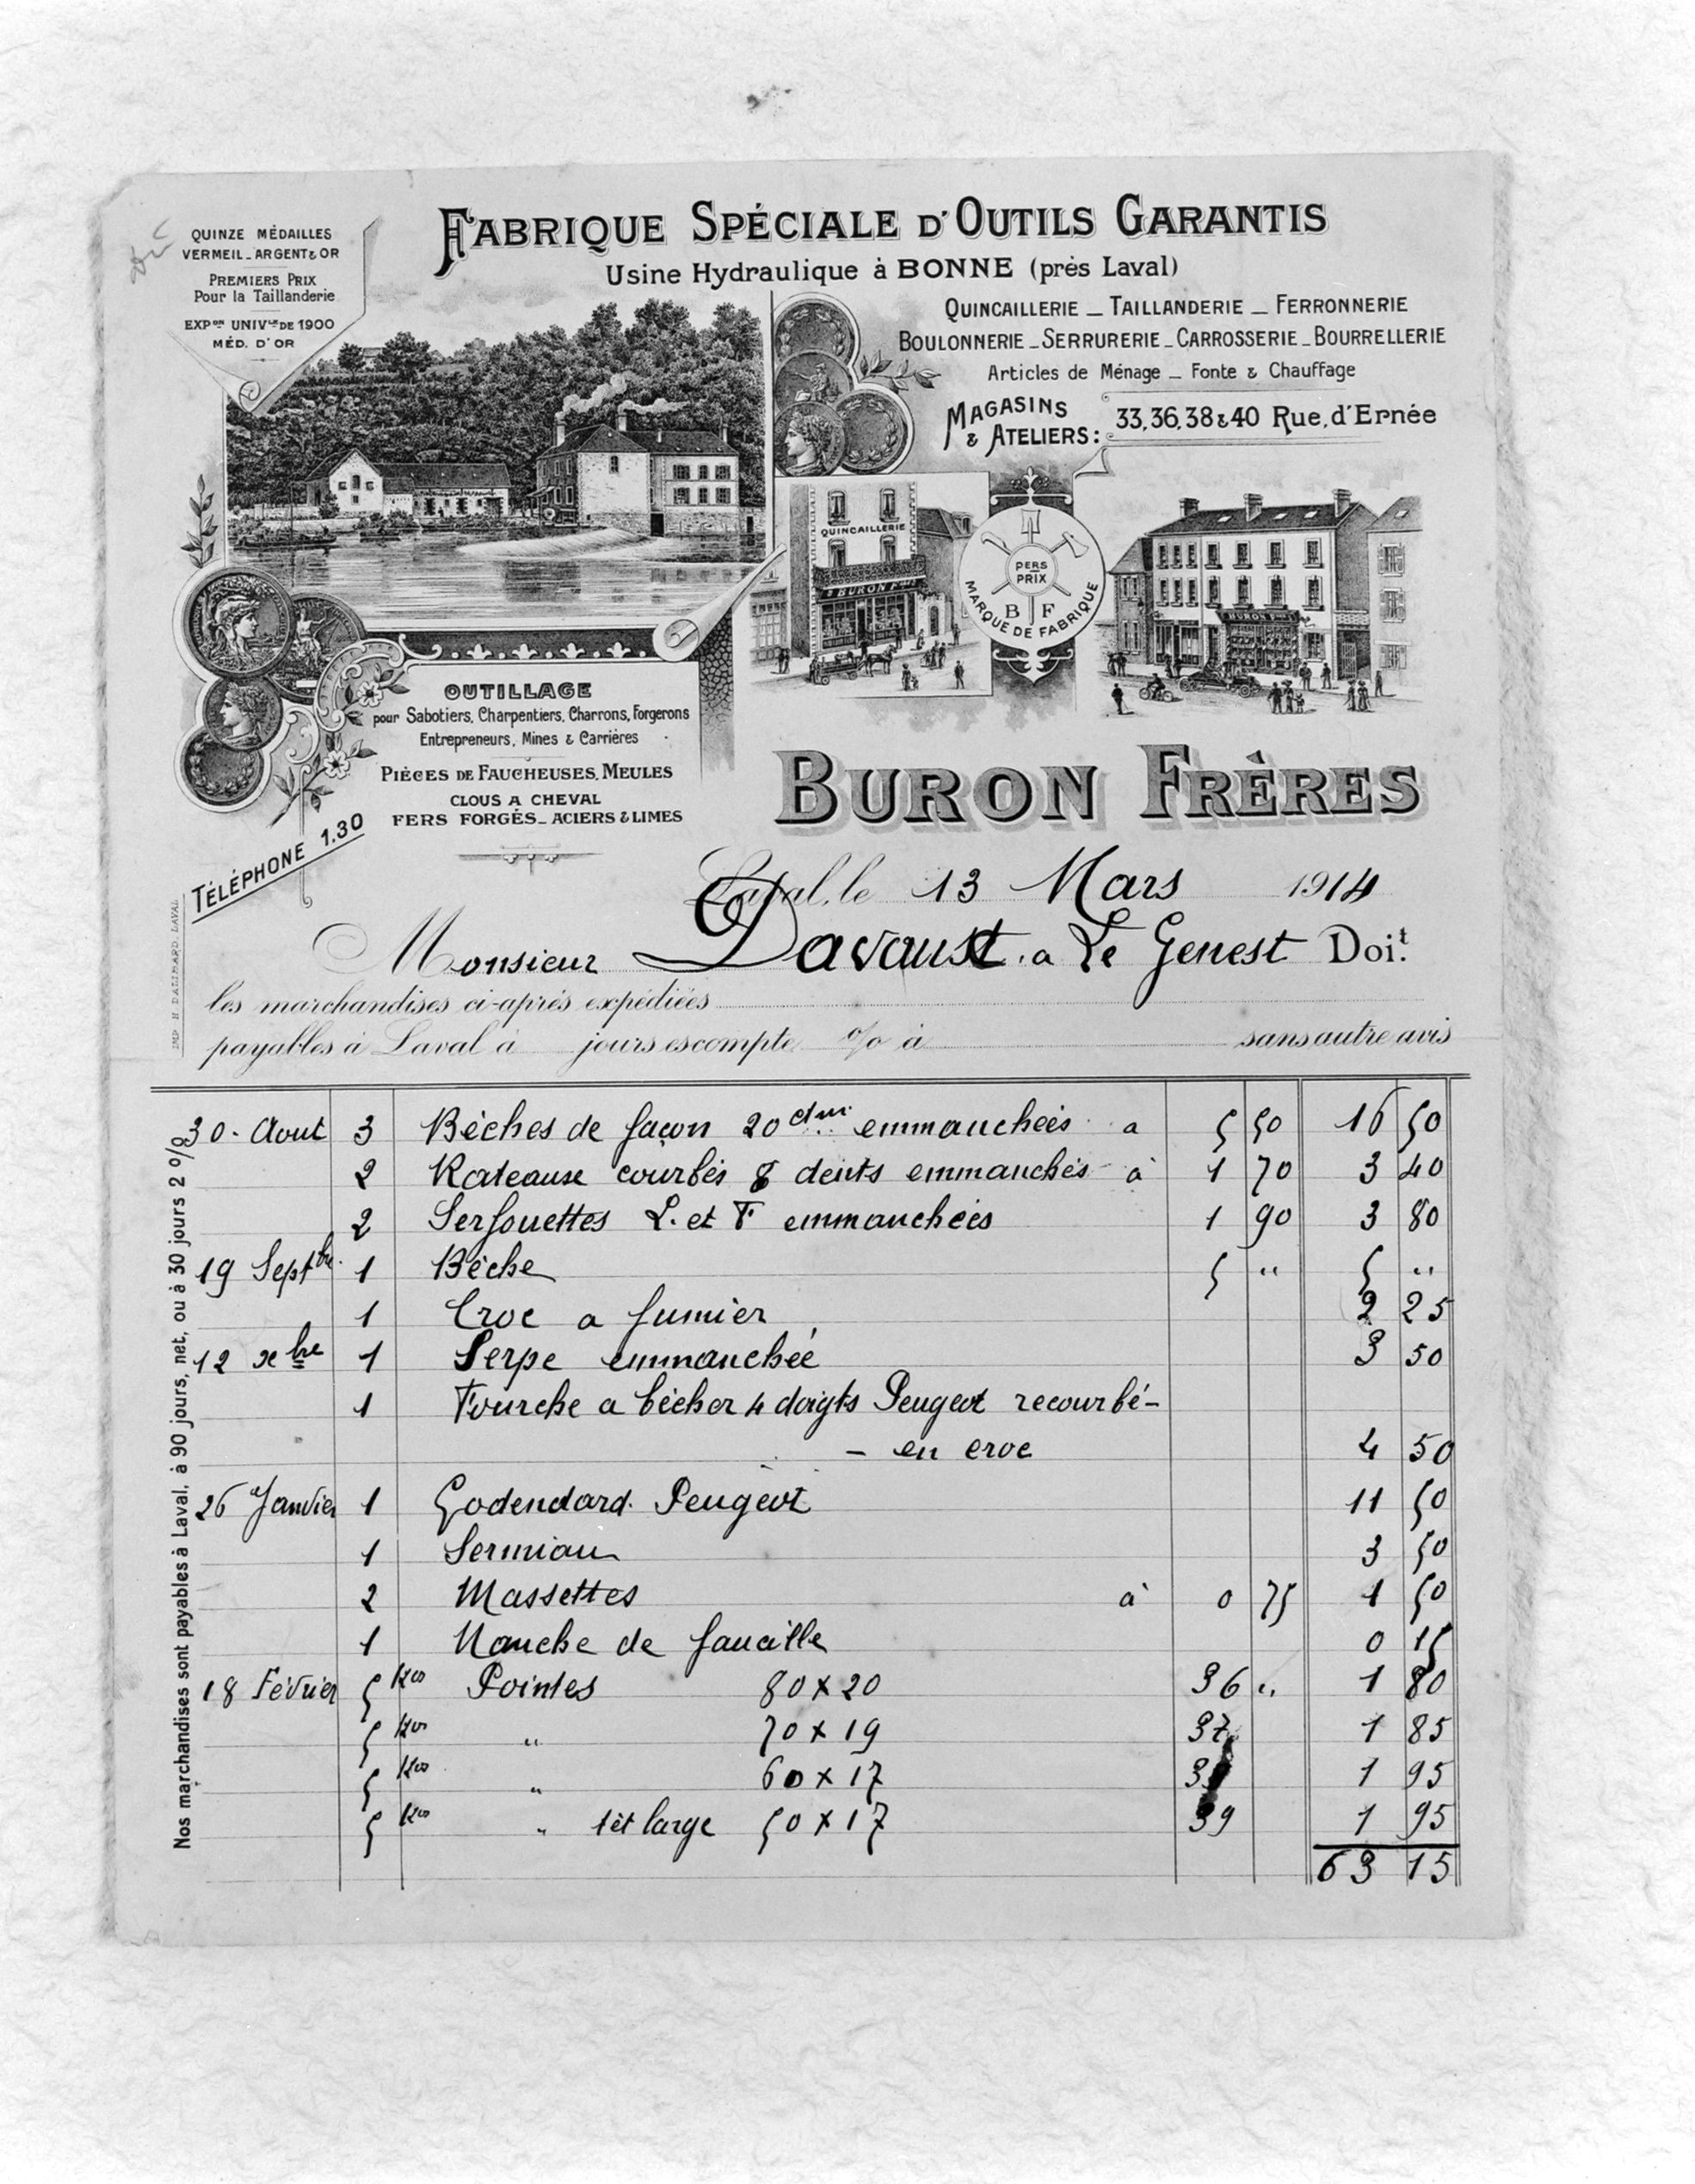 QUINZE MÉDAILLES
VERMEIL_ARGENT & OR
PREMIERS PRIX
Pour la Taillanderie
EXPon UNIVlle DE 1900
MÉD. D'OR
FABRIQUE SPÉCIALE D'OUTILS GARANTIS
Usine Hydraulique à BONNE (près Laval)
QUINCAILLERIE _ TAILLANDERIE _ FERRONNERIE
BOULONNERIE _ SERRURERIE _ CARROSSERIE _ BOURRELLERIE
Articles de Ménage _ Fonte & Chauffage
MAGASINS & ATELIERS: 33, 36, 38 & 40 Rue, d'Ernée
QUINCAILLERIE
BURON
PERS PRIX
B F
MARQUE DE FABRIQUE
OUTILLAGE
pour Sabotiers, Charpentiers, Charrons, Forgerons
Entrepreneurs, Mines & Carrières
PIÈCES DE FAUCHEUSES, MEULES
CLOUS A CHEVAL
FERS FORGÉS _ ACIERS & LIMES
TÉLÉPHONE 1.30
BURON FRÈRES
Laval, le 13 Mars 1914
Monsieur Davaust. a Le Genest Doit.
les marchandises ci-après expédiées
payables à Laval à jours escompte % à sans autre avis
IMP. H. LAVAL
Nos marchandises sont payables à Laval, à 90 jours, net, ou à 30 jours 2 %
30. Aout 3 Bèches de façon 20 cdm. emmanchées a 5 50 16 50
2 Rateaux courbés 8 dents emmanchés à 1 70 3 40
2 Serfouettes L. et F emmanchées 1 90 3 80
19 Septbre. 1 Bèche 5 " 5 "
1 Croc a fumier 2 25
12 xbre 1 Serpe emmanchée 3 50
1 Fourche a bècher 4 doigts Peugeot recourbé-
- en croc 4 50
26 Janvier 1 Godendard. Peugeot 11 50
1 Sermiau 3 50
2 Massettes à 0 75 1 50
1 Manche de faucille 0 15
18 Février 5 kos Pointes 80 x 20 36 " 1 80
5 kos " 70 x 19 37 1 85
5 kos " 60 x 17 1 95
5 kos " tèt large 50 x 17 39 1 95
63 15